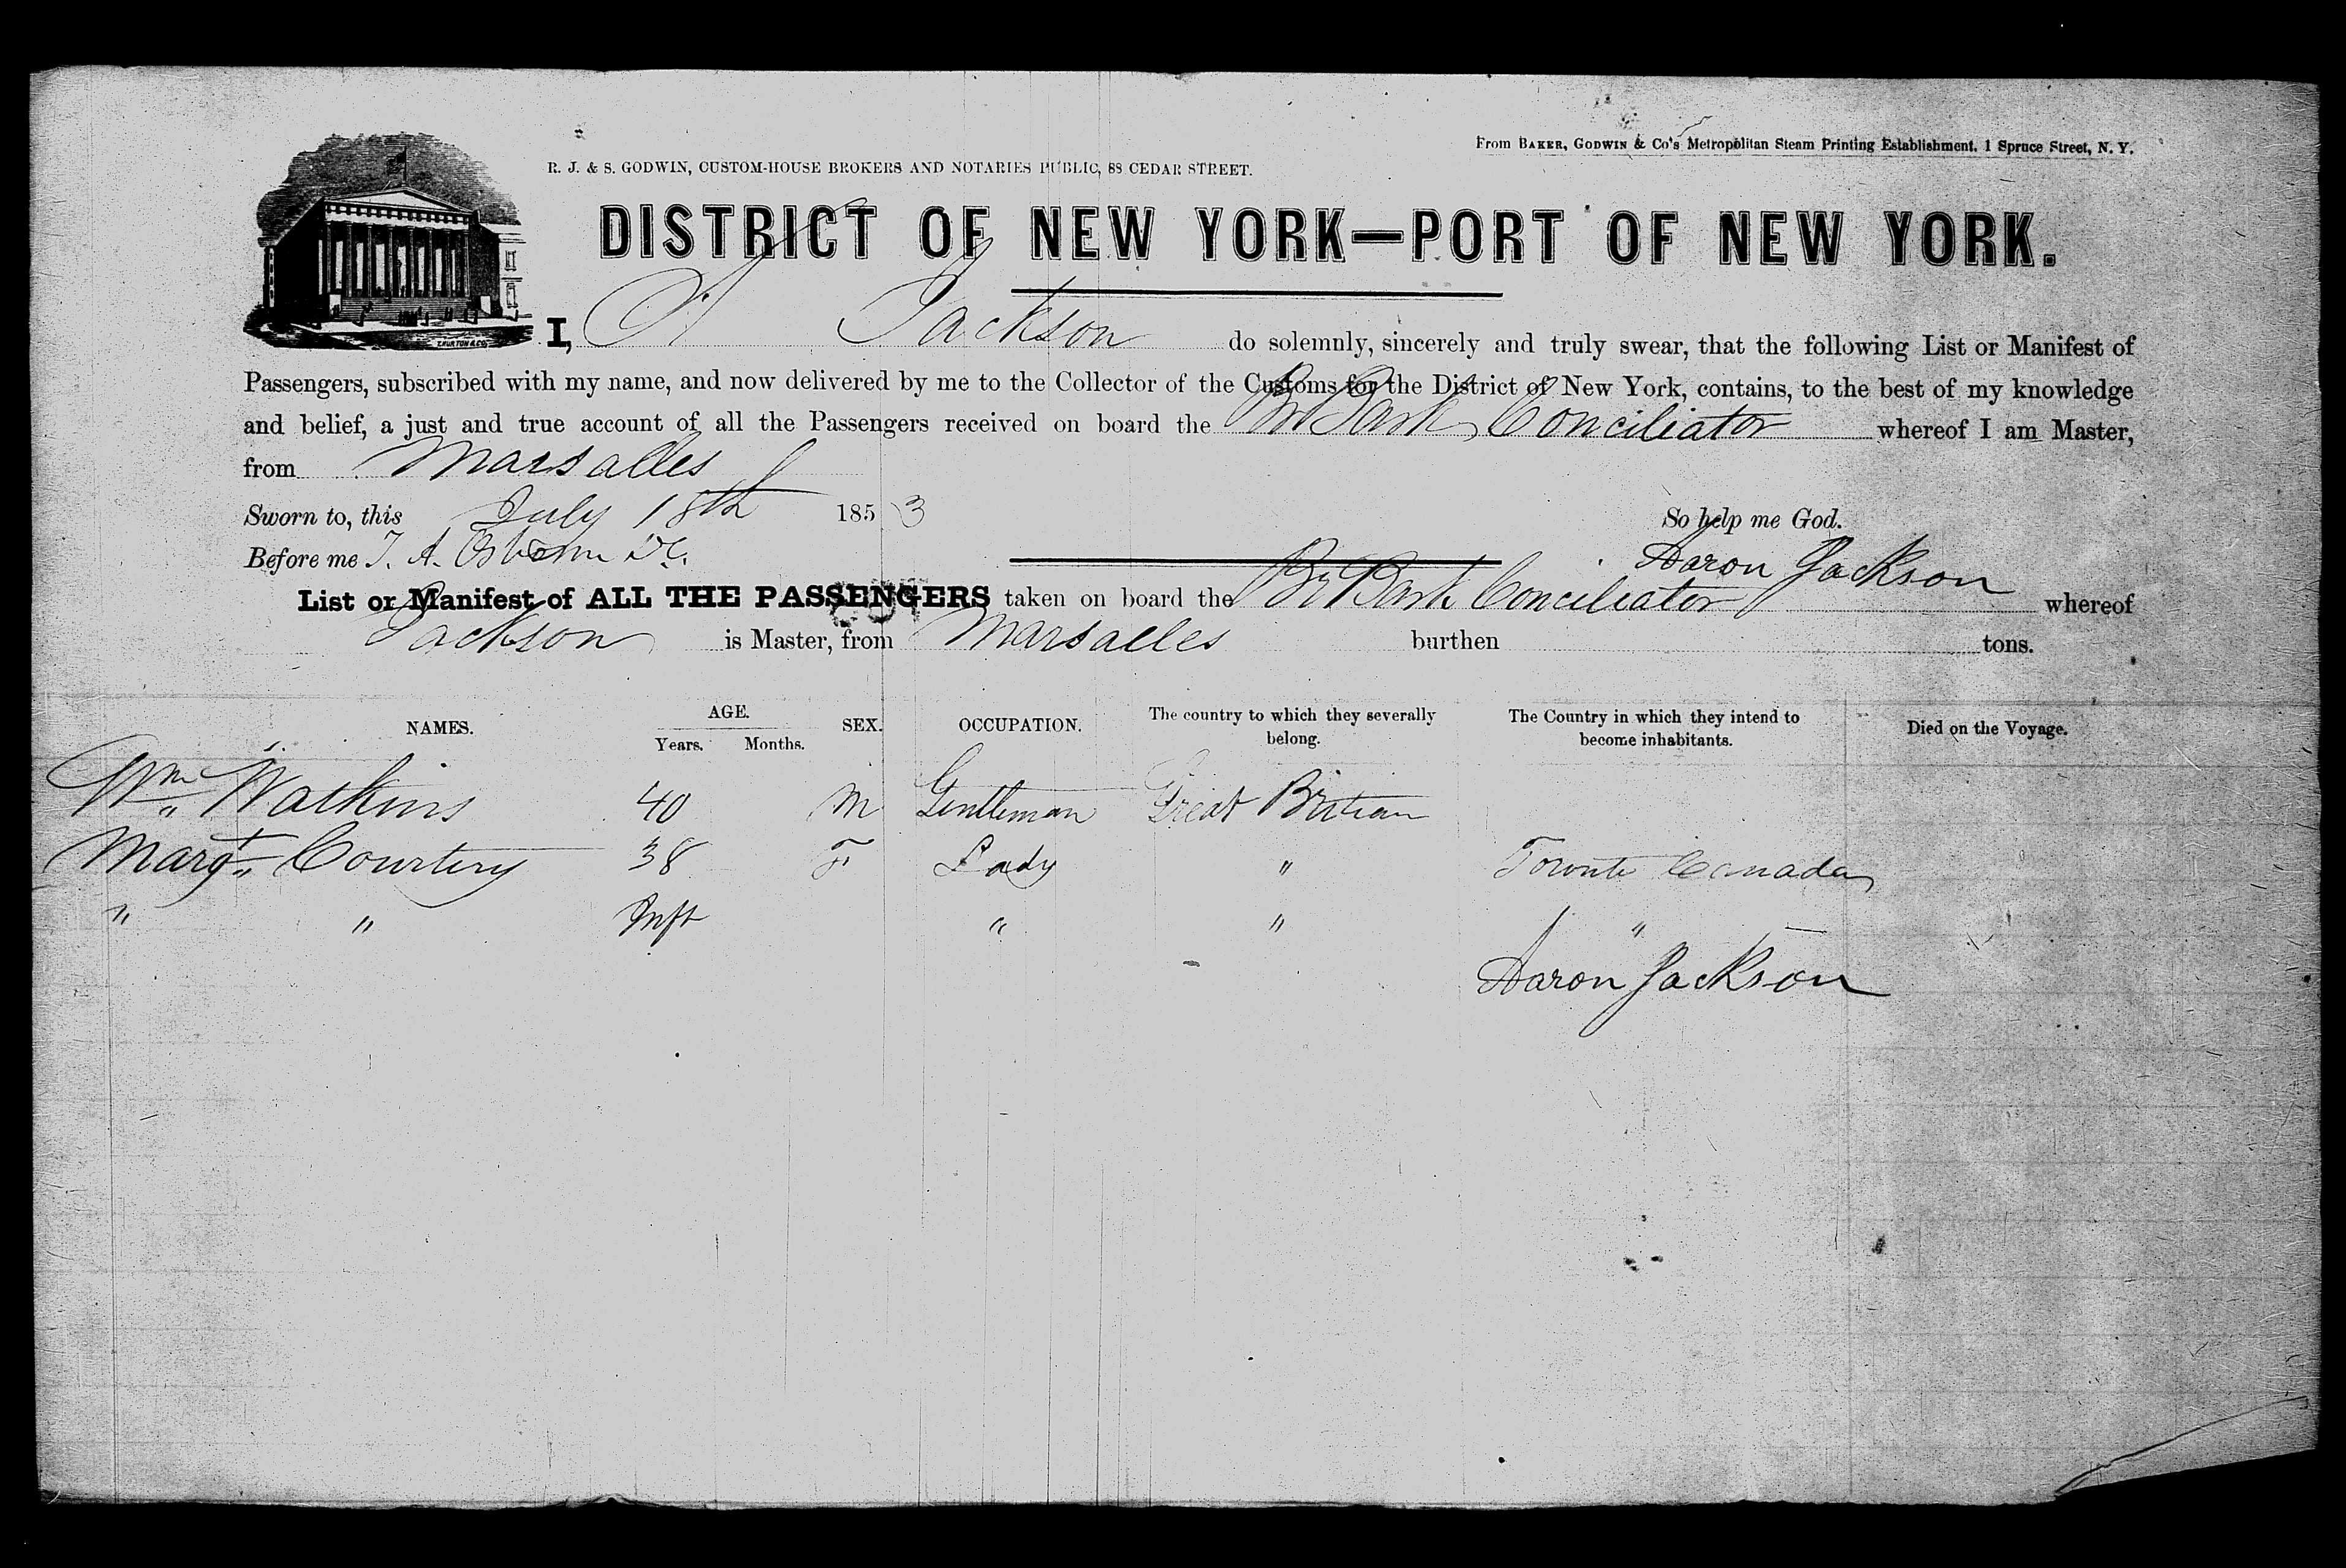 From BAKER, GODWIN & Co's Metropolitan Steam Printing Establishment, 1 Spruce Street, N. Y.
R. J. & S. GODWIN, CUSTOM-HOUSE BROKERS AND NOTARIES PUBLIC, 88 CEDAR STREET.
DISTRICT OF NEW YORK—PORT OF NEW YORK.
I, A Jackson do solemnly, sincerely and truly swear, that the following List or Manifest of
Passengers, subscribed with my name, and now delivered by me to the Collector of the Customs for the District of New York, contains, to the best of my knowledge
and belief, a just and true account of all the Passengers received on board the Br Bark Conciliator whereof I am Master,
from Marsalles
Sworn to, this July 18th 1853 So help me God.
Before me T. A. Osborn Aaron Jackson
List or Manifest of ALL THE PASSENGERS taken on board the Br Bark Conciliator whereof
Jackson is Master, from Marsalles burthen tons.
NAMES. AGE. Years. Months. SEX. OCCUPATION. The country to which they severally belong. The Country in which they intend to become inhabitants. Died on the Voyage.
Wm Watkins 40 M Gentleman Great Britian
Margt Courtery 38 F Lady " Toronto Canada
" " Inft " " "
Aaron Jackson